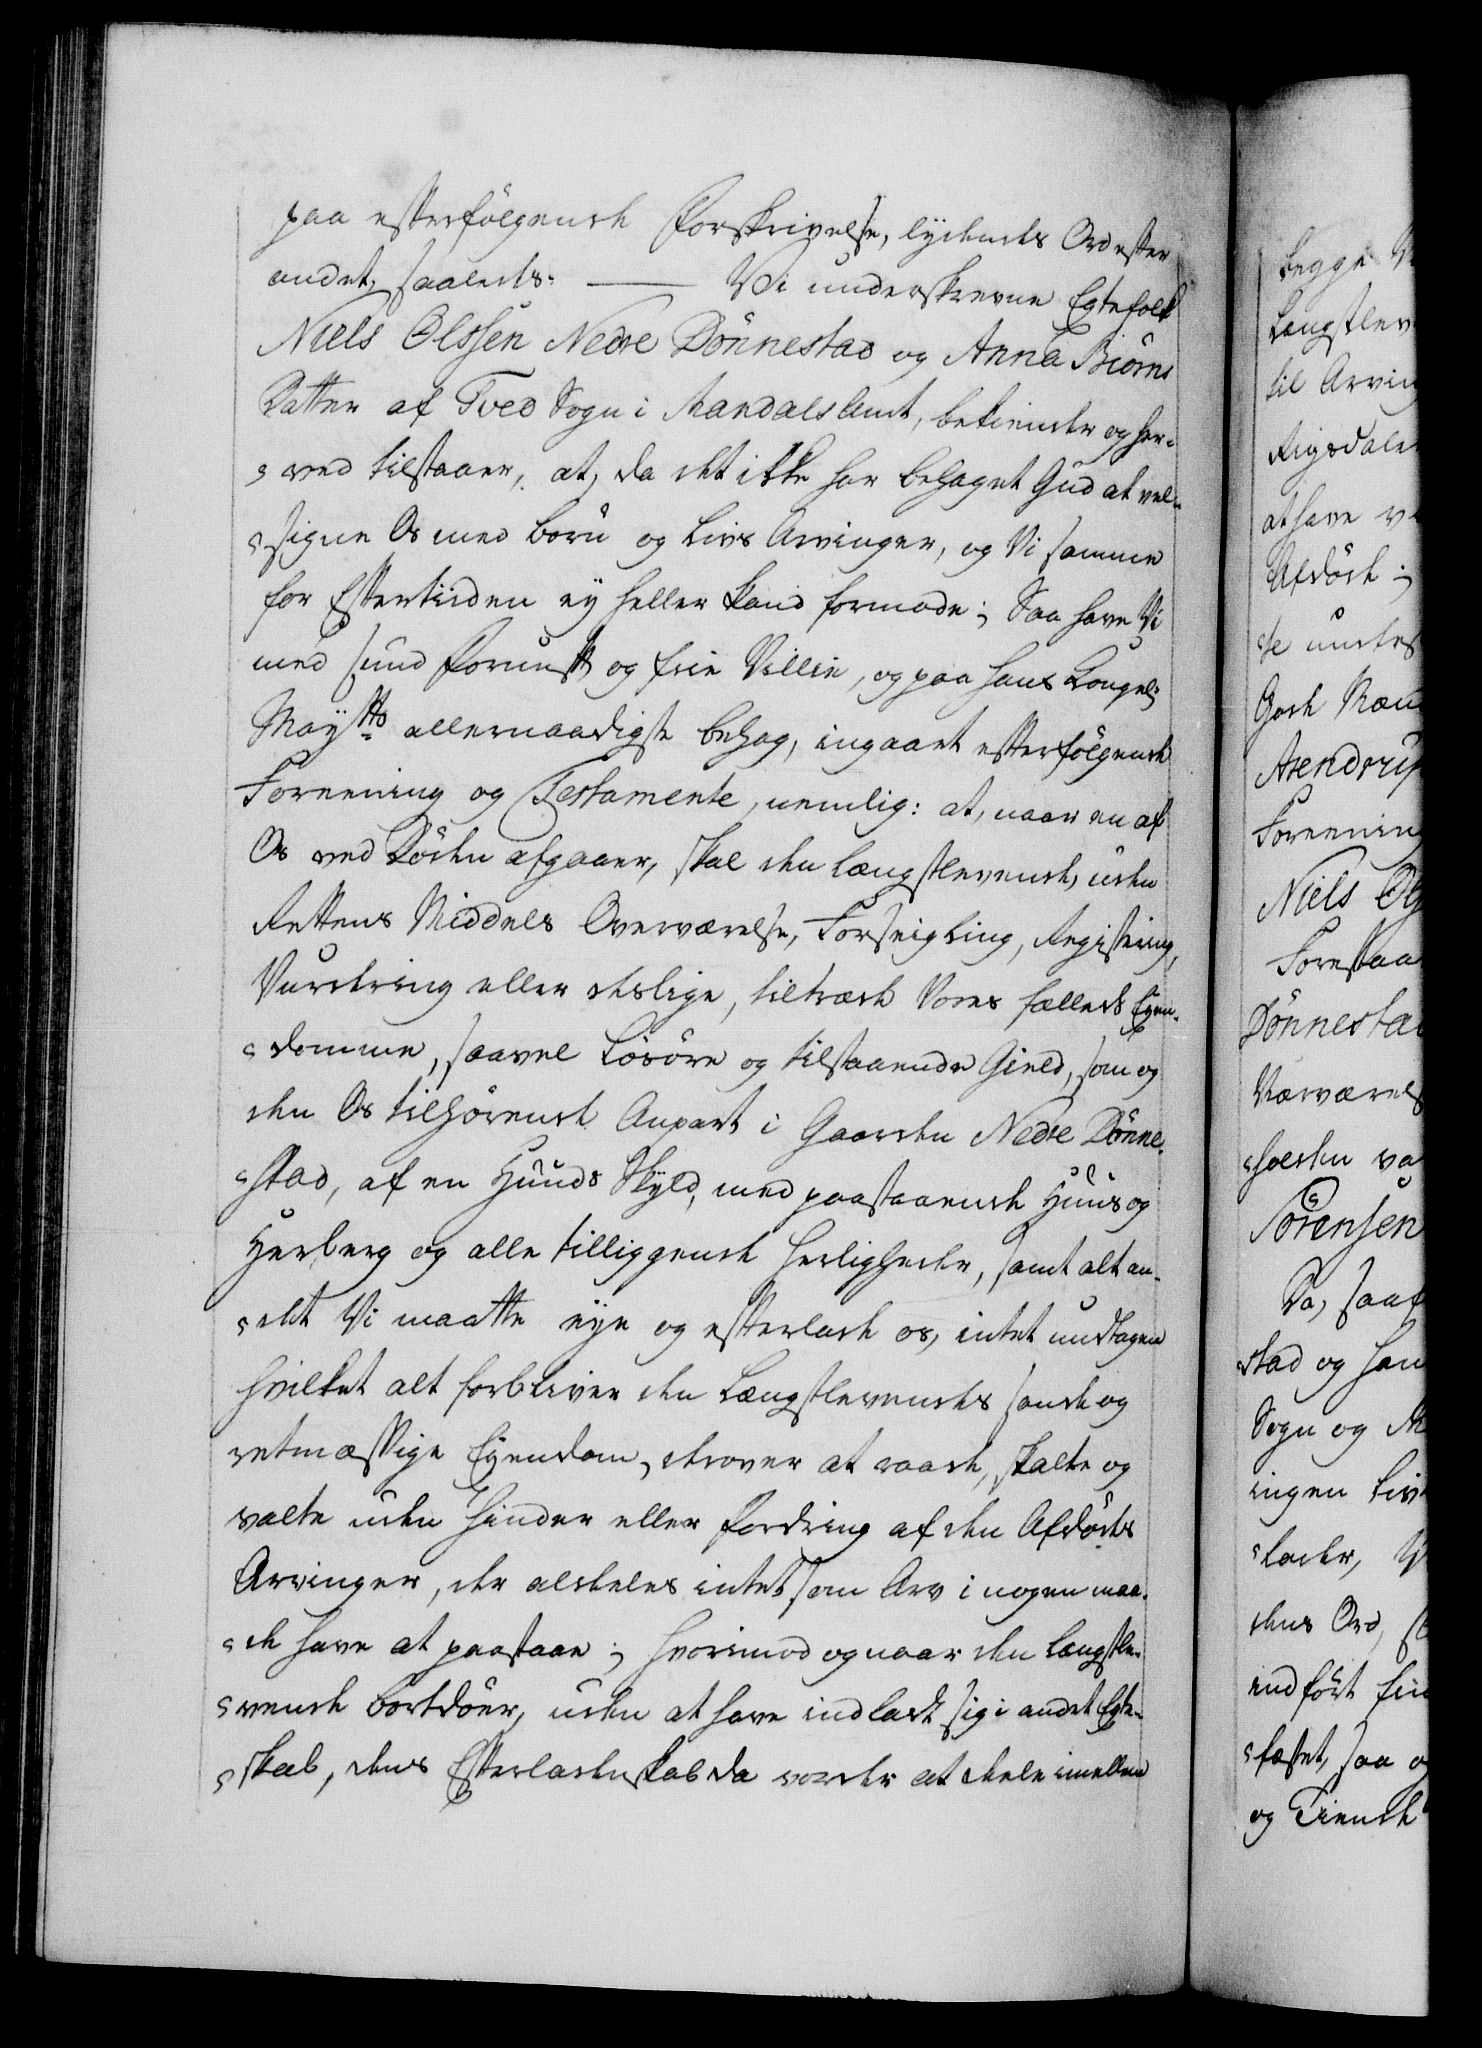 paa efterfölgende Forskrivelse, lydendes Ord efter
andet, saaledes: — Vi underskrevne Egtefolk
Niels Olssen Nedre Dönnestad og Anna Biörns
Datter af Tved Sogn i Mandals Amt, bekiender og her-
ved tilstaaer, at, da det ikke har behaget Gud at vel-
signe Os med Börn og Livs Arvinger, og Vi samme
for Eftertiiden ey heller kand formode; Saa have Vi
med sund Fornuft og frie Villie, og paa Hans Kongel:
Mayts allernaadigste behag, ingaaet efterfölgende
Foreening og Testamente, nemlig: at, naar en af
Os ved Döden afgaaer, skal den Længstlevende, uden
Rettens Middels Overværelse, Forseigling, Registering,
Vurdering eller deslige, tiltræde Vores fælleds Eyen-
domme, saavel Lösöre og tilstaaende Gield, som og
den Os tilhörende Anpart i Gaarden Nedre Dönne-
stad, af en Huuds Skyld, med paastaaende Huus og
Herberg og alle tilliggende Herligheder, samt alt an-
det Vi maatte eye og efterlade os, intet undtagen
hvilket alt forbliver den Længstlevendes sande og
retmæssige Eyendom, derover at raade, skalte og
valte uden Hinder eller fordring af den Afdödes
Arvinger, der aldeles intet som Arv i nogen maa-
de have at paastaae; hvorimod og naar den Længstle-
vende bortdöer, uden at have indladt sig i andet Egte-
skab, dens Efterladenskab da vorder at dele imellem
begge
Længstlev
til Arving
Rigsdaler
at have
Afdöde;
se undes
Gode
Arendrup
Foreening
Niels Ols
Forestaa
Dönnestad
Nærværels
holden va
Sörensen
Da, saaf
stad og han
Sogn og M
ingen Liv
lader, V
dens Ord, s
indfört fin
fæstet, saa o
og Tiende